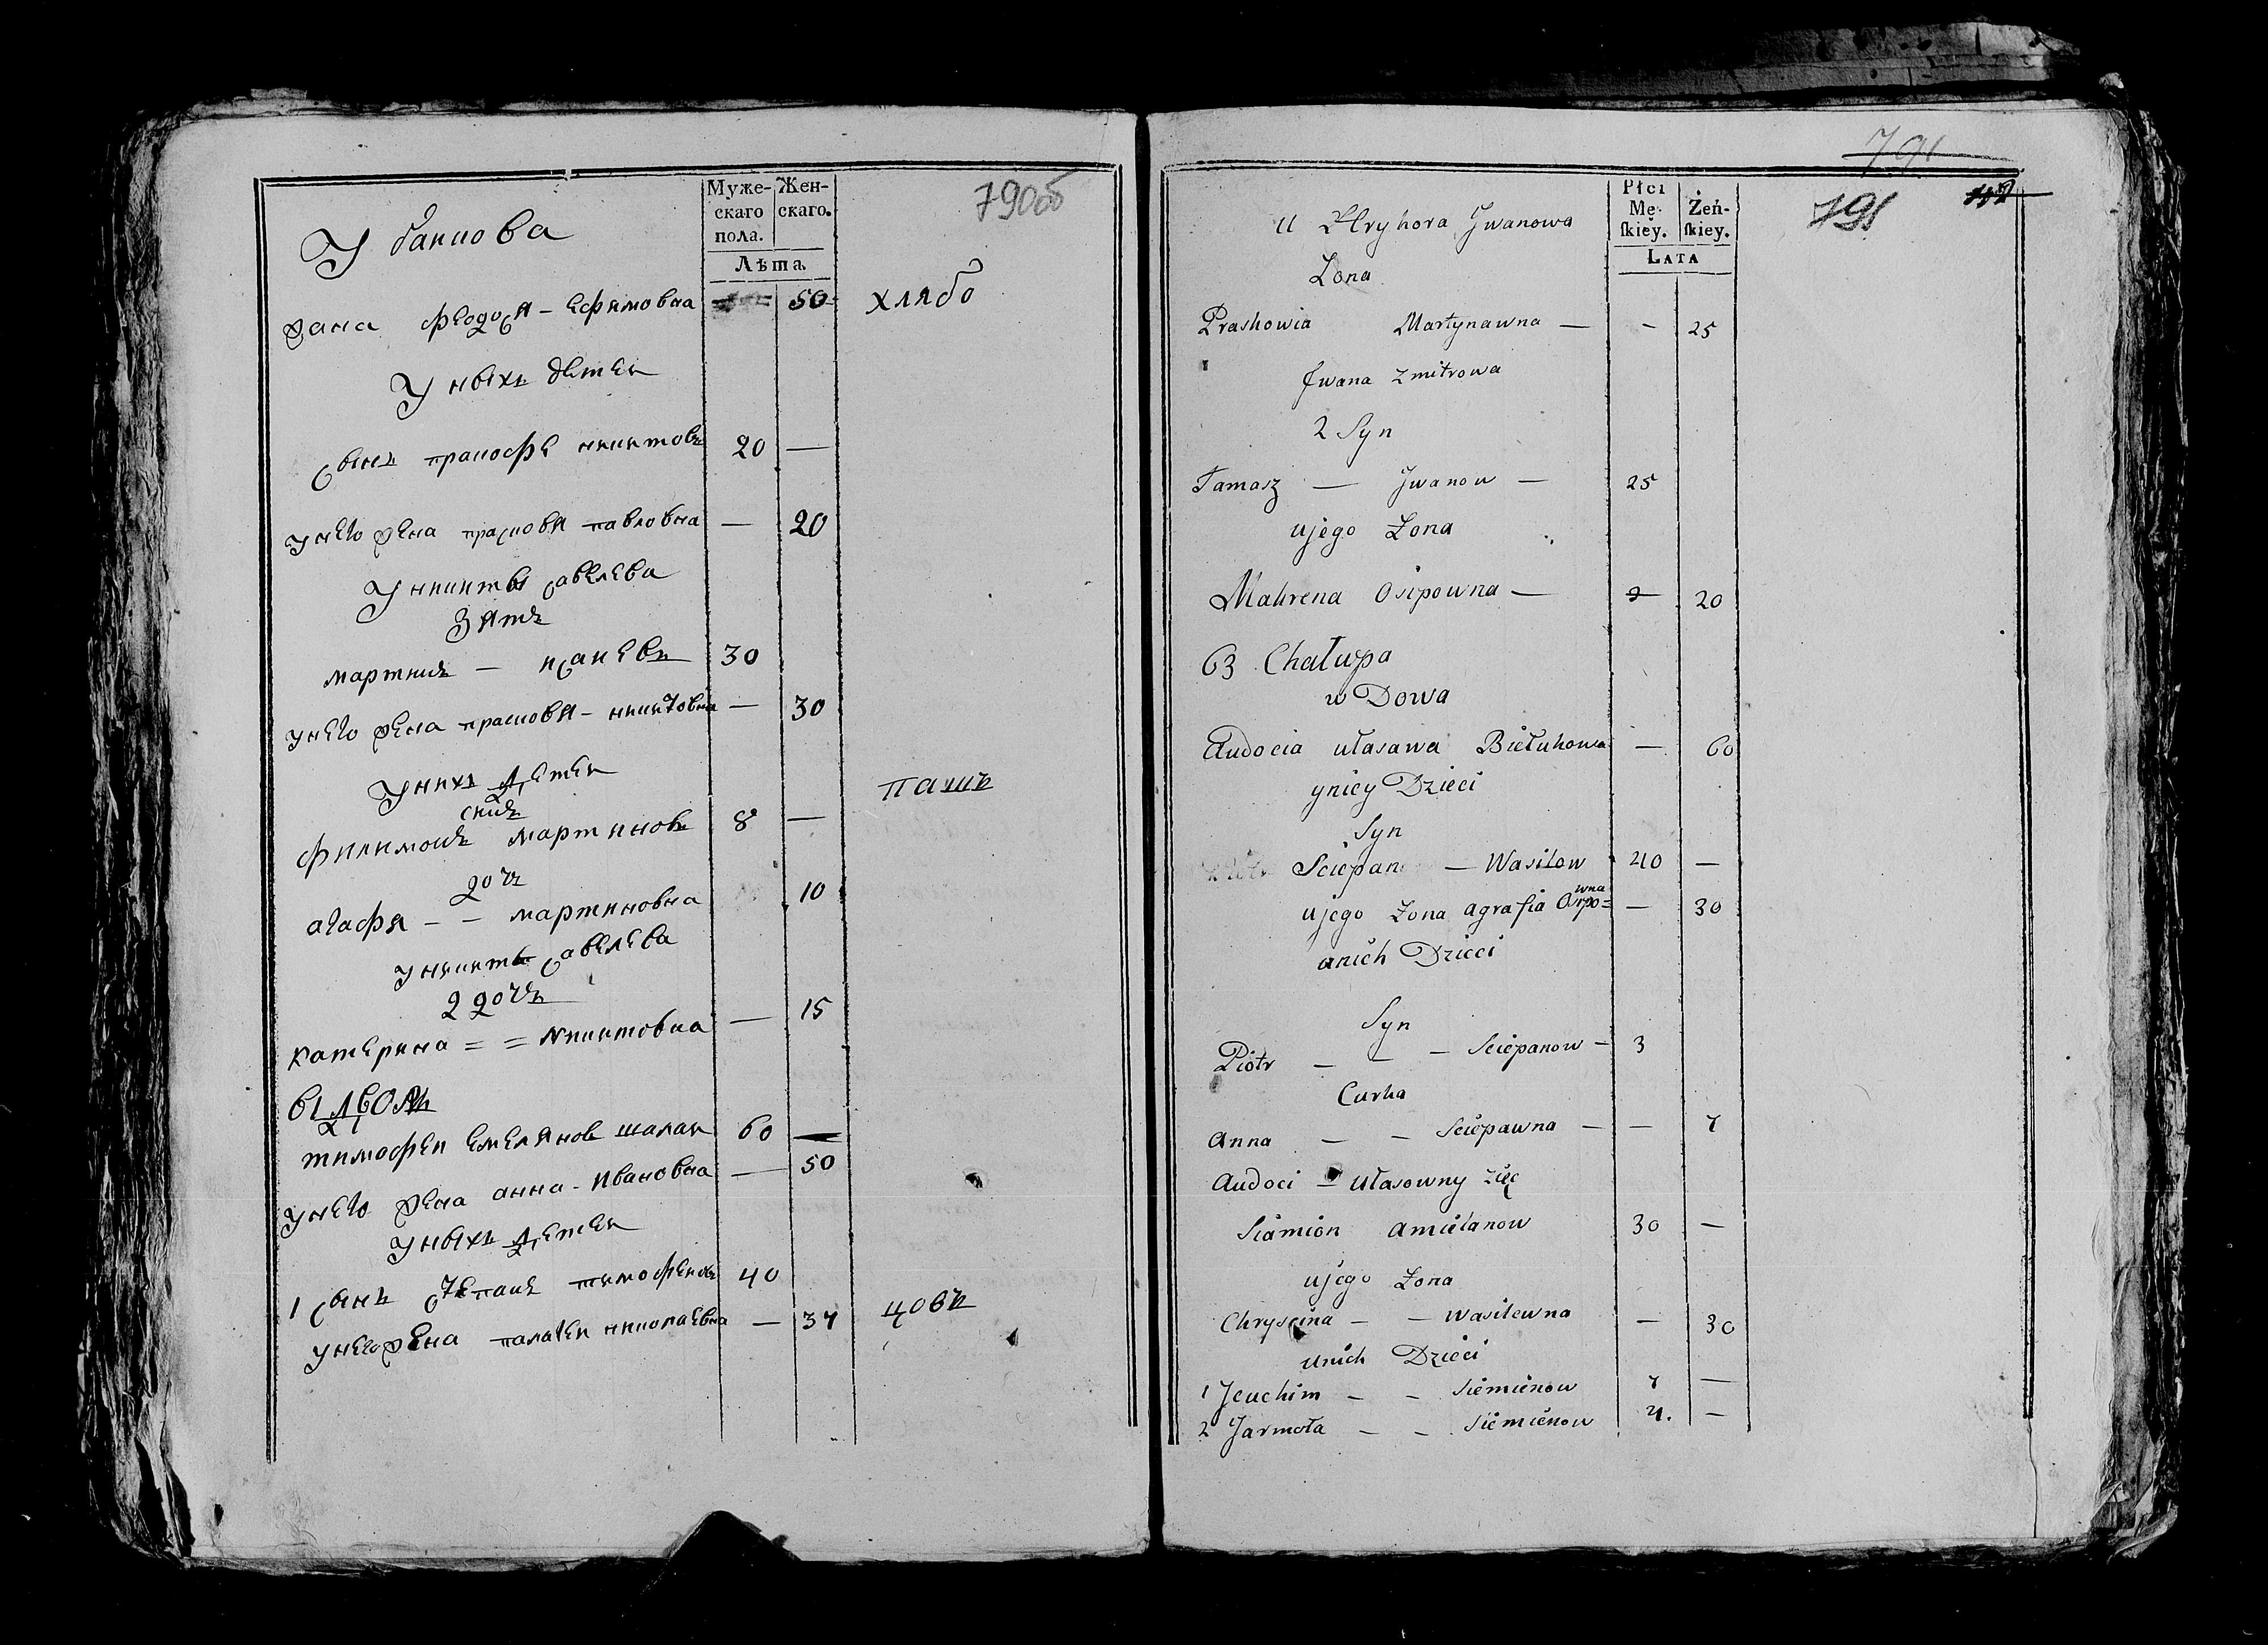 Муже-
скаго
пола.
Жен-
скаго.
Лѣта
790об
У
жана феодося - ефимовна 50
хлябо
У ныхъ детеи
сынъ никитовъ 20 —
унего жена прасковя павловна — 20
У никиты савелева
Зять
мартинъ — исаиевъ 30
унего жена прасковя - никитовна — 30
У нихъ детеи
пашъ
синъ
филимонъ мартиновъ 8 —
дочъ
агафя - - мартиновна 10
у никиты савелева
2 дочъ
катерина = = никитовна — 15
тимофеи емелянов шалаи 60 —
унего жена анна - ивановна — 50
уныхъ детеи
1 сынъ степанъ тимофеиовъ 40
унего жена палагеи николаевна — 37
цовъ
791
791
Płci
Mę-
skiey.
Żeń-
skiey.
LATA
U Hryhora Jwanowa
Zona
Praskowia Martynawna — - 25
Jwana Zmitrowa
2 Syn
Tamasz — Jwanow — 25
ujego Zona
Mahrena Osipowna — 20
63 Chałupa
w Dowa
Audocia ułasawa Biełuhowa — 60
yniey Dzieci
Syn
Sciepan — Wasilow 40 —
ujego Zona agrafia Orpo=wna — 30
unich Dzieci
Syn
Piotr — — — Sciepanow - 3
Curka
Anna — - Sciepawna - — 7
Audoci — Ułasowny zięc
Siamion Amielanow 30 —
ujego Zona
Chryscina - - Wasilewna — 30
unich Dzieci
1 Jeuchim - - Siemienow 7 —
2 Jarmoła - - Siemienow 4. —